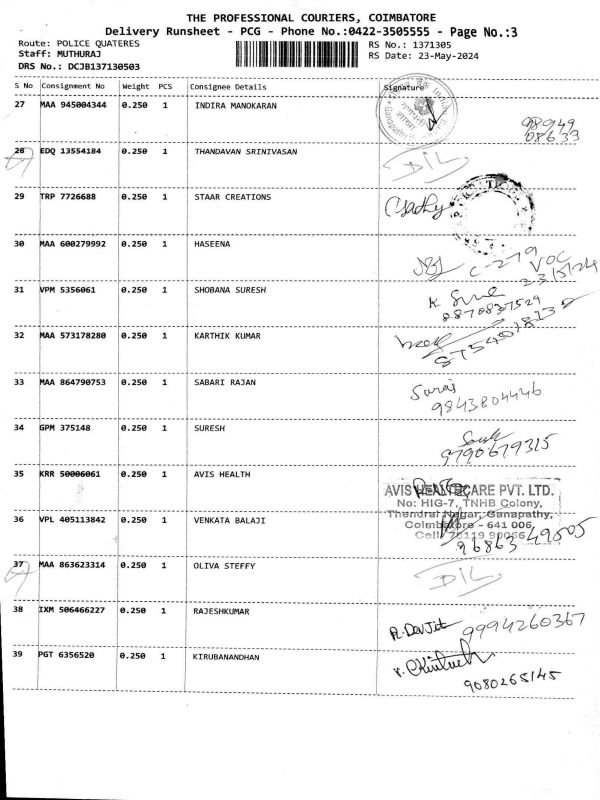 THE PROFESSIONAL COURIERS, COIMBATORE
Delivery Runsheet - PCG - Phone No.:0422-3505555 - Page No.:3
Route: POLICE QUATERES
RS No.: 1371305
Staff: MUTHURAJ
RS Date: 23-May-2024
DRS No.: DCJB137130503
S No Consignment No Weight PCS Consignee Details Signature
27 MAA 945004344 0.250 1 INDIRA MANOKARAN
98949
08633
28 EDQ 13554184 0.250 1 THANDAVAN SRINIVASAN DIL
29 TRP 7726688 0.250 1 STAAR CREATIONS
30 MAA 600279992 0.250 1 HASEENA
C-279 VOC
23/5/24
31 VPM 5356061 0.250 1 SHOBANA SURESH
32 MAA 573178280 0.250 1 KARTHIK KUMAR
33 MAA 864790753 0.250 1 SABARI RAJAN
9843804446
34 GPM 375148 0.250 1 SURESH
9790679315
35 KRR 50006061 0.250 1 AVIS HEALTH
AVIS HEALTHCARE PVT. LTD.
No: HIG-7, TNHB Colony,
Thendral Nagar, Ganapathy,
Coimbatore - 641 006,
36 VPL 405113842 0.250 1 VENKATA BALAJI
37 MAA 863623314 0.250 1 OLIVA STEFFY DIL
38 IXM 506466227 0.250 1 RAJESHKUMAR
9994260367
39 PGT 6356520 0.250 1 KIRUBANANDHAN
9080265145